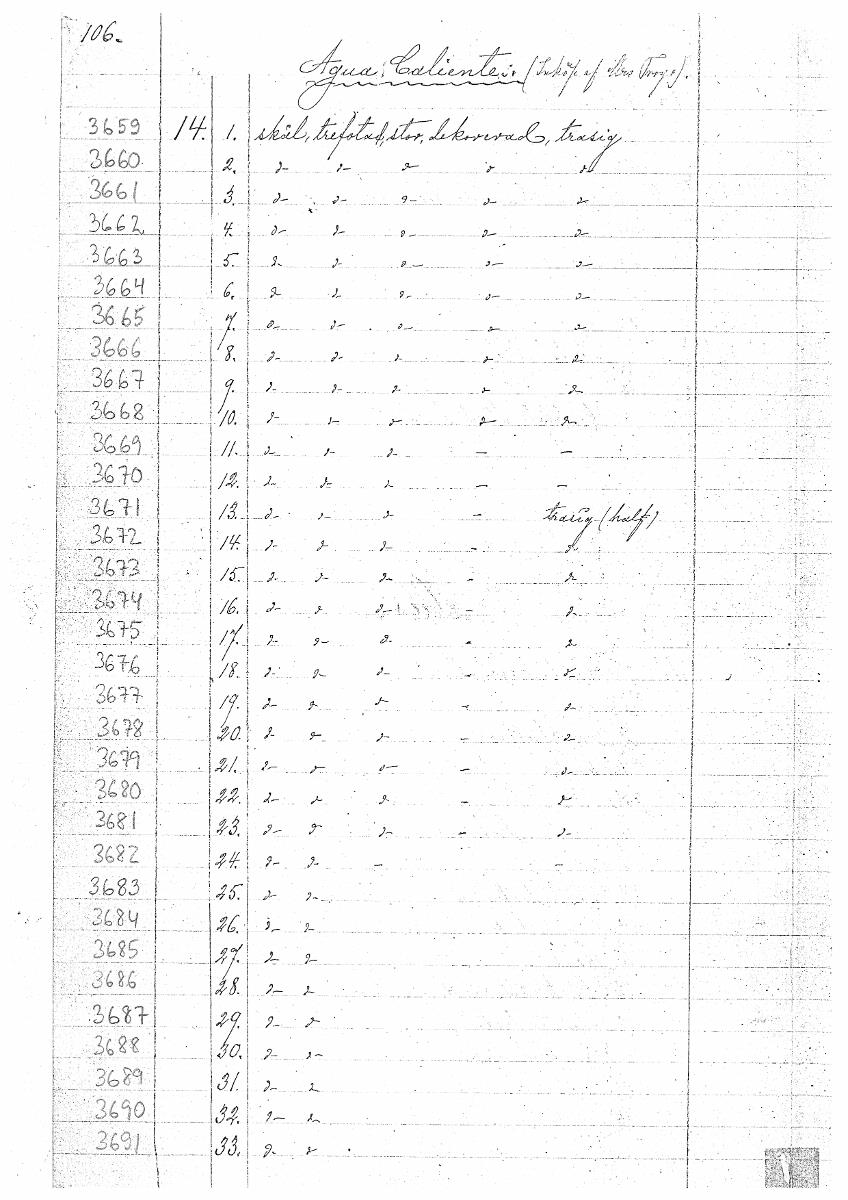 106.
Agua Caliente: (Inköp af Mrs Troyo).
3659 14. 1. skål, trefotad, stor, dekorerad, trasig
3660 2. d- d- d- d d
3661 3. d- d- d- d d
3662 4. d- d- d- d- d-
3663 5. d d d- d- d-
3664 6. d- d d- d- d-
3665 7. d- d- d- d d
3666 8. d- d- d d d
3667 9. d- d- d d d
3668 10. d- d- d- d d
3669 11. d- d- d- - -
3670 12. d- d- d - -
3671 13. d- d- d - trasig (half)
3672 14. d- d d - d
3673 15. d- d- d - d
3674 16. d- d d- - d
3675 17. d- d- d - d
3676 18. d- d d- - d-
3677 19. d- d d - d
3678 20. d- d d - d
3679 21. d- d d- - d
3680 22. d- d d - d
3681 23. d- d d- - d-
3682 24. d- d - -
3683 25. d- d-
3684 26. d- d
3685 27. d- d-
3686 28. d- d
3687 29. d- d
3688 30. d- d-
3689 31. d- d
3690 32. d- d
3691 33. d- d